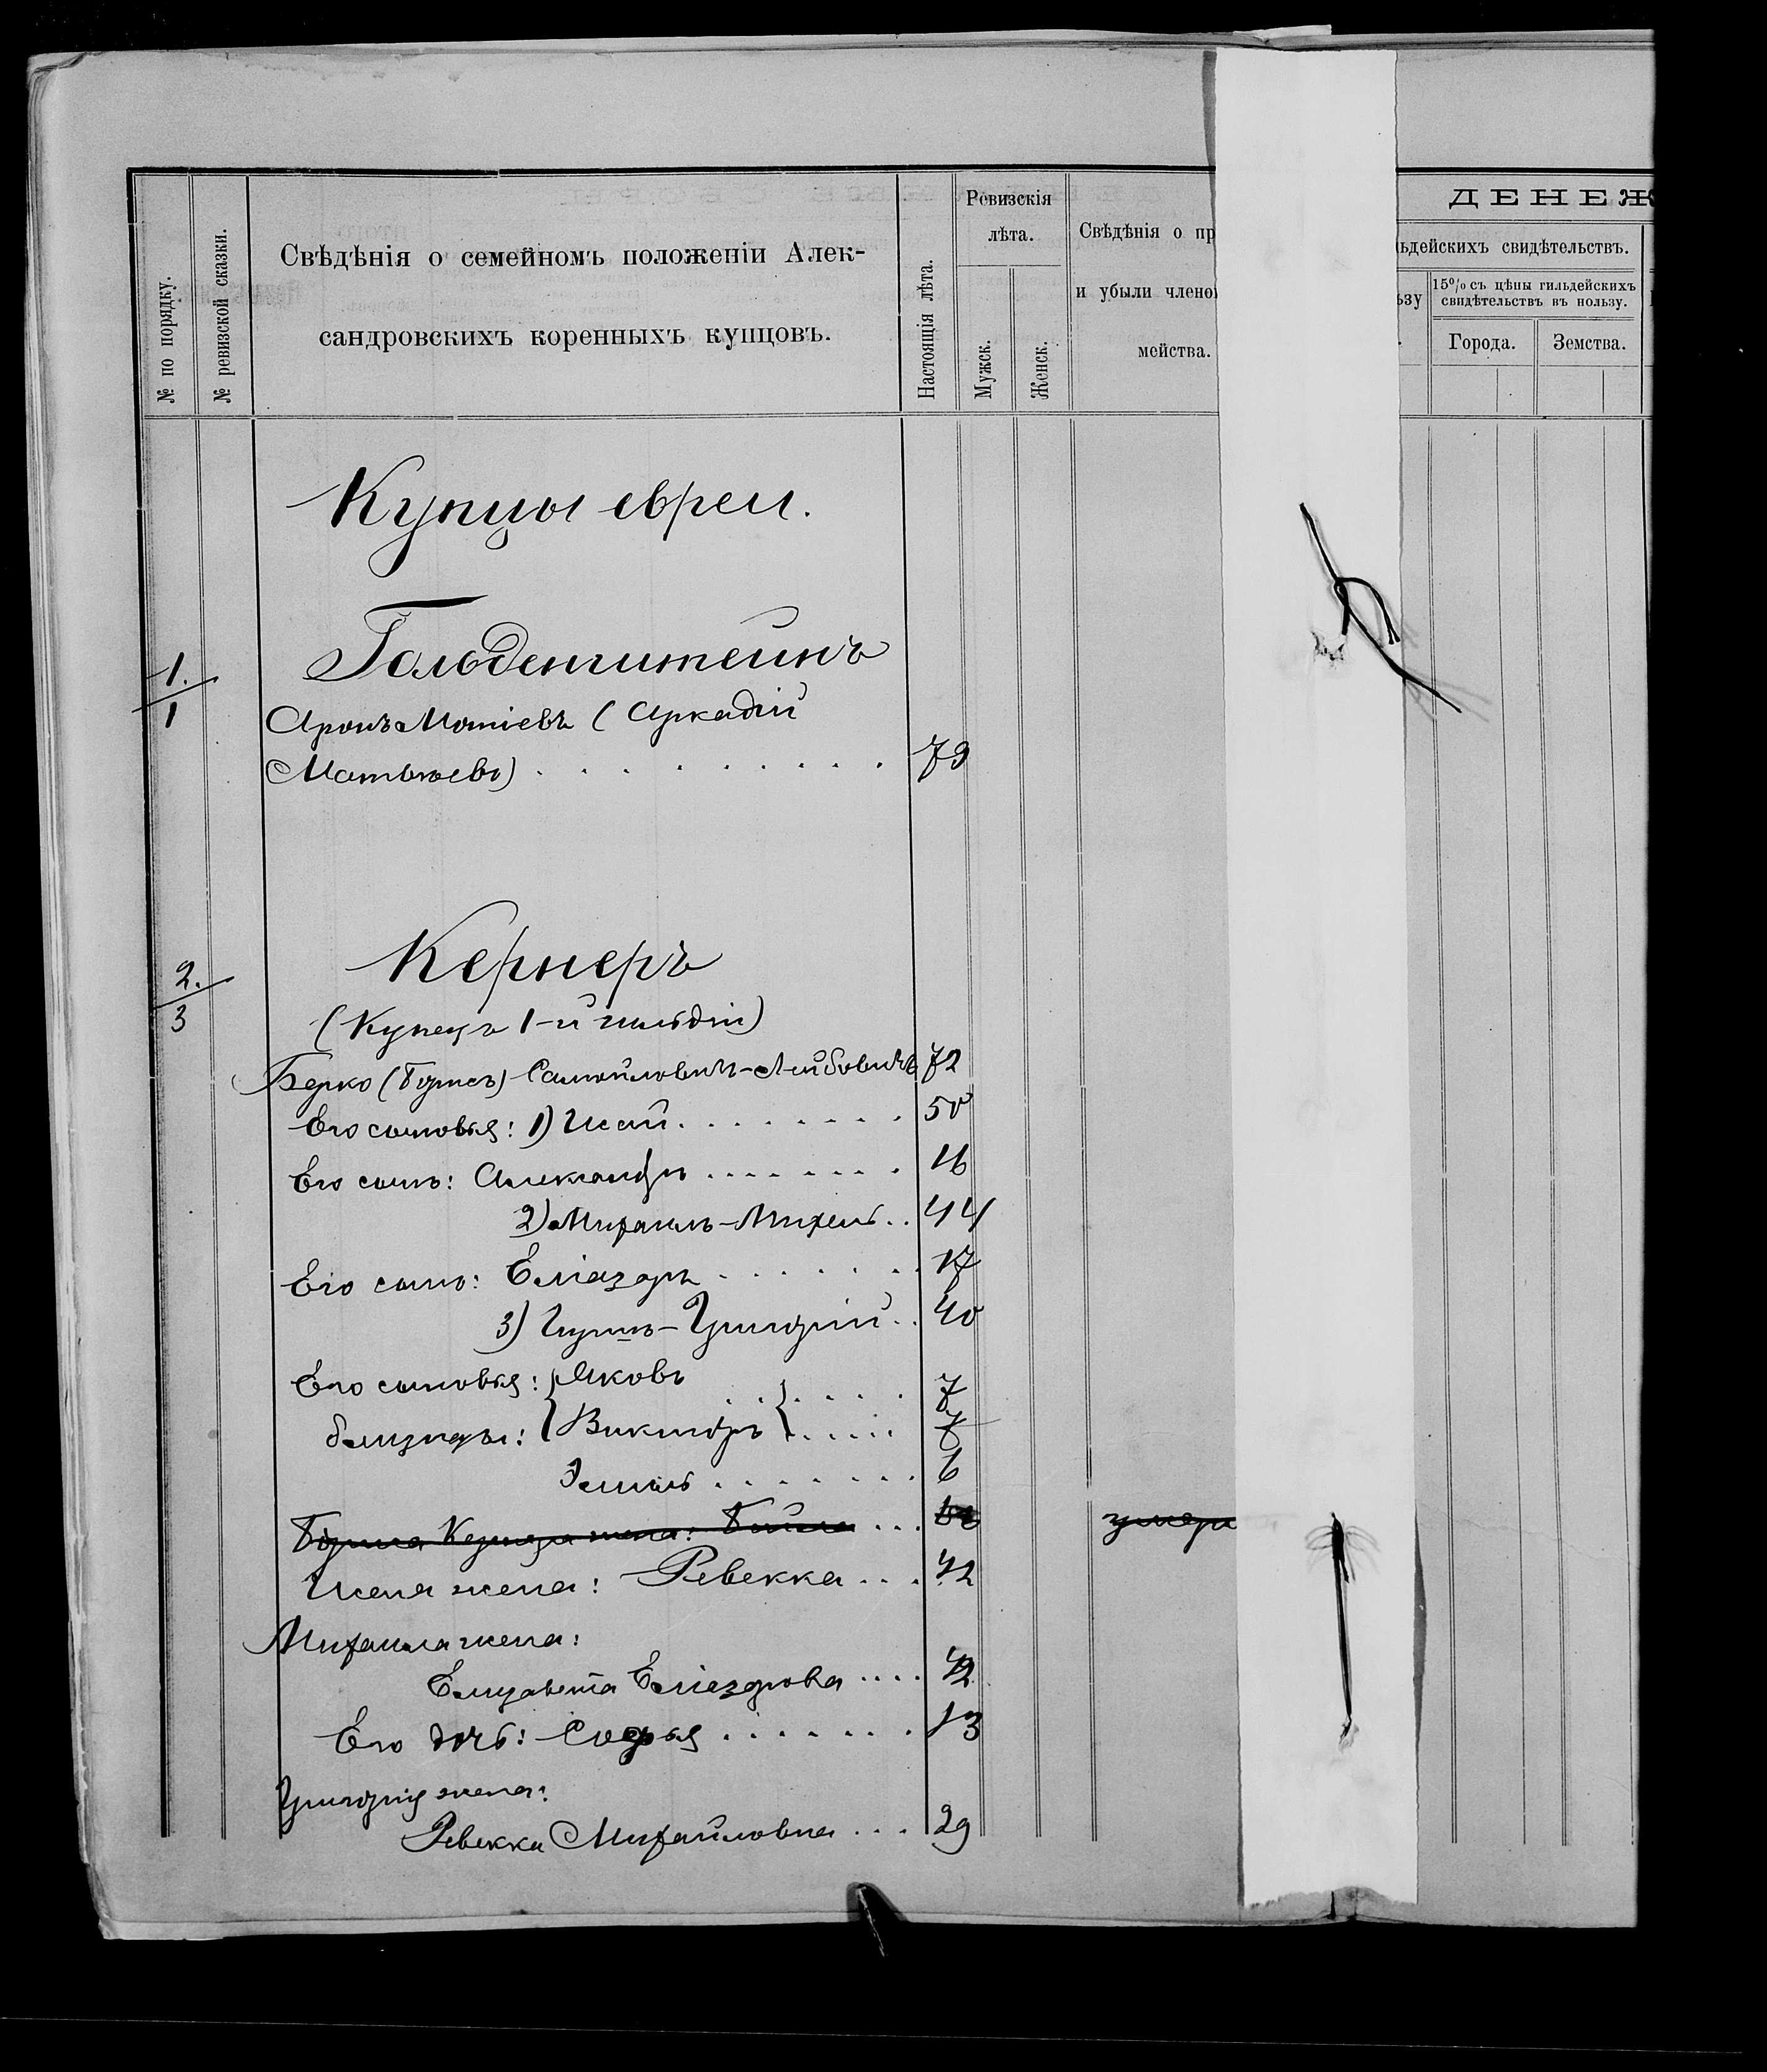 № по порядку.
№ ревизской сказки.
Свѣдѣнія о семейномъ положеніи Алек-
сандровскихъ коренныхъ купцовъ.
Настоящія лѣта.
Ревизскія
лѣта.
Мужск.
Женск.
Свѣдѣнія о пр
и убыли члено
мейства.
ДЕНЕЖ
льдейскихъ свидѣтельствъ.
ьзу
15% съ цѣны гильдейскихъ
свидѣтельствъ въ пользу.
Города.
Земства.
Купцы евреи.
1.
1
Гольденштейнъ
Аронъ Мотіевъ (Аркадій
Матвѣевъ) . . . . . . . . . 79
2.
3
Кернеръ
(Купецъ 1-й гильдіи)
Берко (Борисъ) Самойловичъ-Лейбовичъ 72
Его сыновья: 1) Исай . . . . . . . . 50
Его сынъ: Александръ . . . . . . . 16
2) Михаилъ-Михель . . 44
Его сынъ: Еліазаръ . . . . . . . 17
3) Гиршъ-Григорій . . 40
Его сыновья: Яковъ . . . . . . 7
близнецы: Викторъ . . . . . 7
Эмиль . . . . . . . 6
Бориса Кернера жена: Бейла . . .
умерл
Исая жена: Ревекка . . . 42
Михаила жена:
Елизавета Еліазарова . . . . 42
Его дочь: Софья . . . . . . . 13
Григорія жена:
Ревекка Михайловна . . . 29